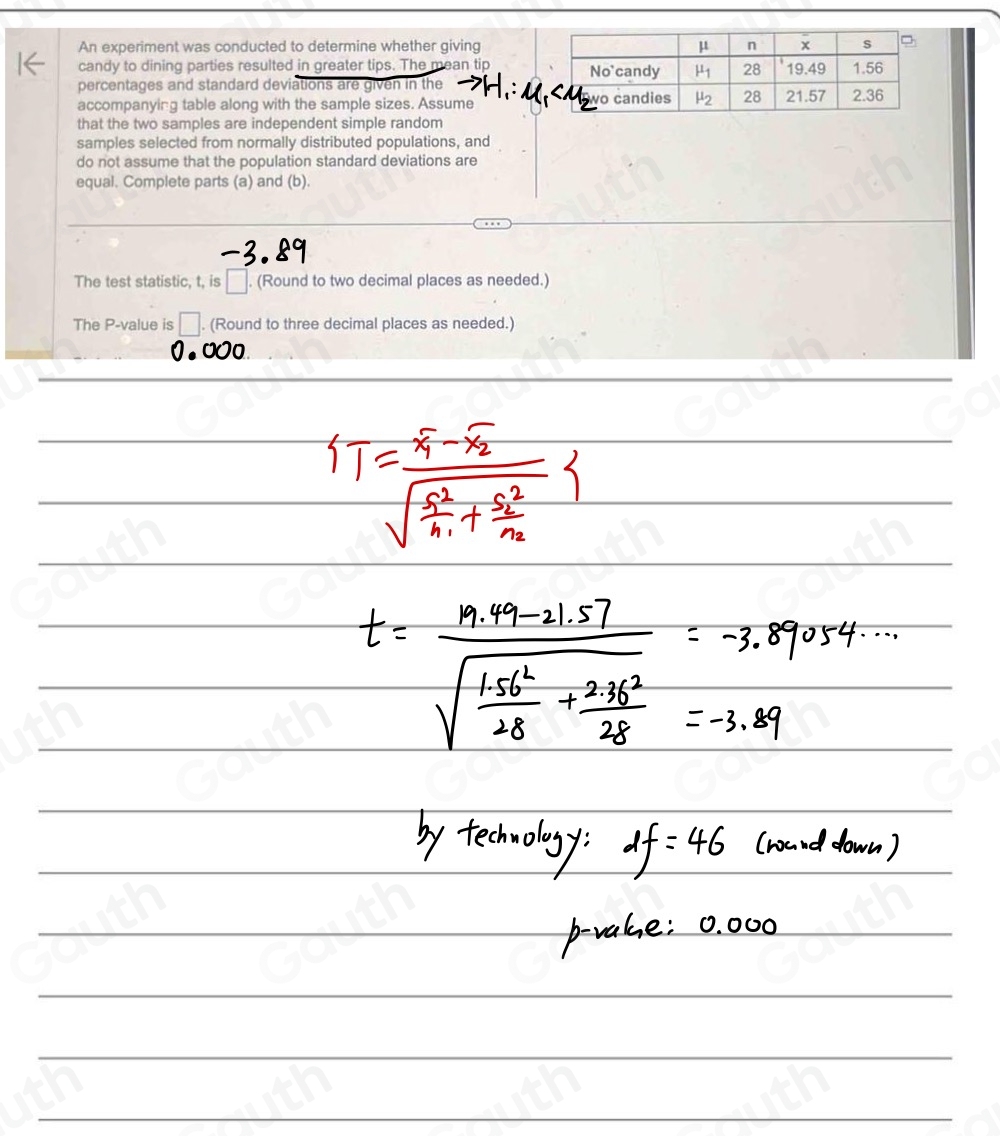 An experiment was conducted to determine whether giving
candy to dining parties resulted in greater tips. The mean tip
percentages and standard deviations are given in the
accompanying table along with the sample sizes. Assume
that the two samples are independent simple random
samples selected from normally distributed populations, and
do not assume that the population standard deviations are
equal. Complete parts (a) and (b).
→H₁: μ₁<μ₂
μ n x̄ s
No candy μ₁ 28 19.49 1.56
Two candies μ₂ 28 21.57 2.36
-3.89
The test statistic, t, is . (Round to two decimal places as needed.)
The P-value is . (Round to three decimal places as needed.)
0.000
T = (x̄₁ - x̄₂) / √(s₁²/n₁ + s₂²/n₂)
t = (19.49-21.57) / √(1.56²/28 + 2.36²/28) = -3.89054....
= -3.89
by technology: df = 46 (round down)
p-value: 0.000
Gauth